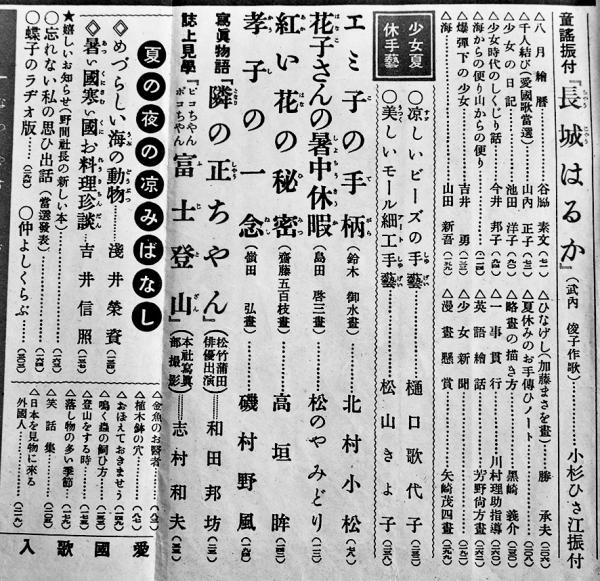 童謡振付『長城はるか』(武内俊子作歌) 小杉ひさ江振付
△八月繪暦……谷脇素文
△千人結び(愛國歌當選)……山内正子
△少女の日記……池田洋子
△少女時代のしくじり話……今井邦子
△海からの便り山からの便り
△爆彈下の少女……吉井勇
△海……山田新吾
△ひなげし(加藤まさを畫)……勝承夫
△夏休みのお手傳ひノート
△略畫の描き方……黒崎義介
△一事貫行……川村理助指導
△英語繪話……芳野尙方畫
△少女新聞
△漫畫懸賞……矢崎茂四畫
少女夏休手藝
○凉しいビーズの手藝……樋口歌代子
○美しいモール細工手藝……松山きよ子
エミ子の手柄(鈴木御水畫)……北村小松
花子さんの暑中休暇(島田啓三畫)……松のやみどり
紅い花の秘密(齋藤五百枝畫)……高垣眸
孝子の一念(嶺田弘畫)……磯村野風
寫眞物語『隣の正ちやん』(松竹蒲田俳優出演)……和田邦坊
誌上見學『ピコちやんポコちやん富士登山』(本社寫眞部撮影)……志村和夫
夏の夜の凉みばなし
◇めづらしい海の動物……淺井榮資
◇暑い國寒い國お料理珍談……吉井信照
★嬉しいお知らせ(野間社長の新しい本)
○忘れない私の思ひ出話(當選發表)
○蝶子のラヂオ版……○仲よしくらぶ
△金魚のお醫者
△植木鉢の穴
△おぼえておきませう
△鳴く蟲の飼ひ方
△登山をする時
△落し物の多い季節
△笑話集
△日本を見物に來る外國人
愛國歌入